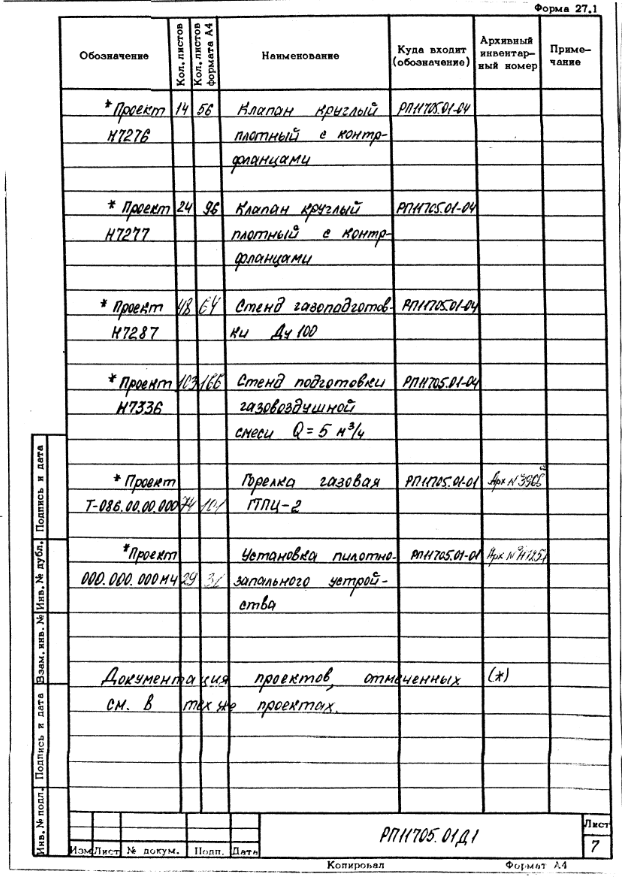 Форма 27.1
Обозначение Кол. листов Кол. листов формата А4 Наименование Куда входит (обозначение) Архивный инвентарный номер Примечание
*Проект 14 56 Клапан круглый РПН705.01-04
Н7276 плотный с контр-
фланцами
* Проект 24 96 Клапан круглый РПН705.01-04
Н7277 плотный с контр-
фланцами
* Проект 48 64 Стенд газоподготов- РПН705.01-04
Н7287 ки Ду 100
* Проект 103 166 Стенд подготовки РПН705.01-04
Н7336 газовоздушной
смеси Q = 5 м³/ч
* Проект Горелка газовая РПН705.01-01
Т-086.00.00.000 74 101 ГПЦ-2
*Проект Установка пилотно- РПН705.01-01
000.000.000МЧ 29 запального устрой-
ства
Документация проектов, отмеченных (*)
см. в тех же проектах.
Инв. № подл. Подпись и дата Взам. инв. № Инв. № дубл. Подпись и дата
РПН705.01Д1 Лист
7
Изм Лист № докум. Подп. Дата
Копировал Формат А4